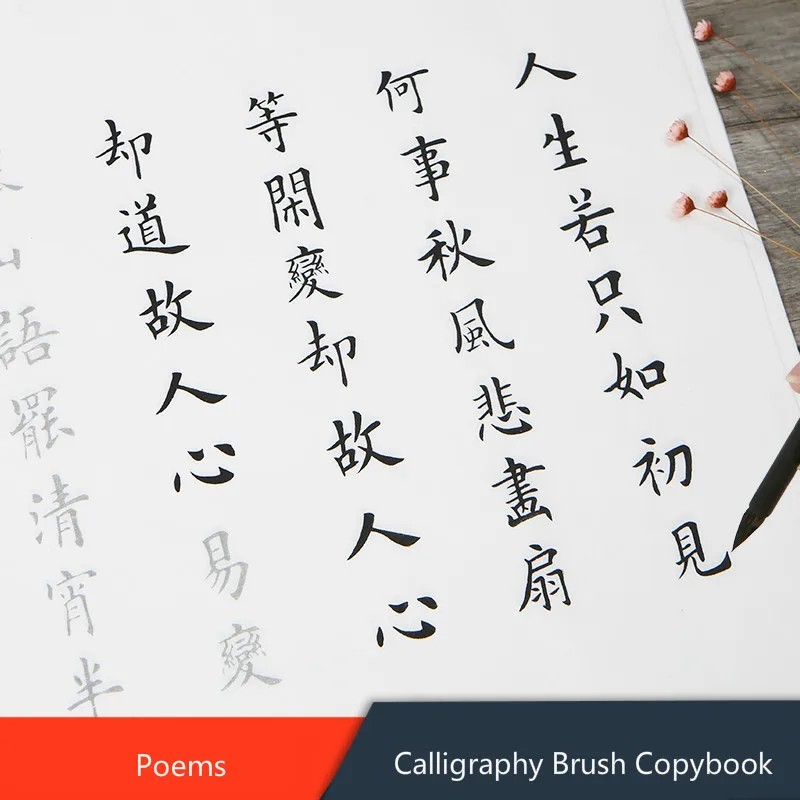 人生若只如初見
何事秋風悲畫扇
等閑變却故人心
却道故人心易變
語罷清宵半
Poems
Calligraphy Brush Copybook